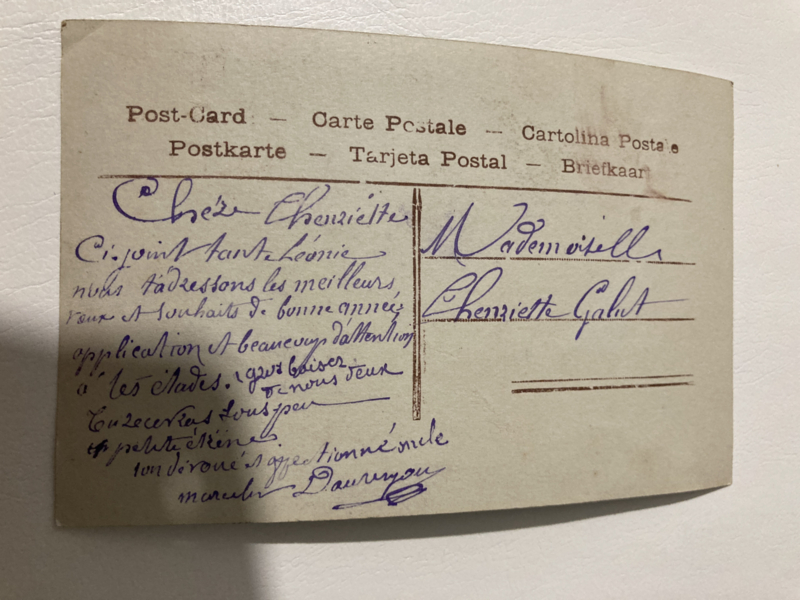 Post-Card — Carte Postale — Cartolina Postale
Postkarte — Tarjeta Postal — Briefkaar
Chére Chenriétte
Ci-joint tante Léonie
nous t'adressons les meilleurs
vœux et souhaits de bonne année,
application et beaucoup d'attention
à tes étades. gros baiser
de nous deux
Tu recevras sous peu
petite étrènes.
ton dévoué et affectionné oncle
Mademoiselle
Chenriette Galut